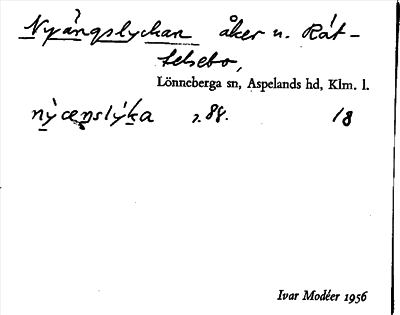 Nyängslyckan åker u. Råt-
telsebo,
Lönneberga sn, Aspelands hd, Klm. l.
nỳcens̀lýka 88. 18
Ivar Modéer 1956